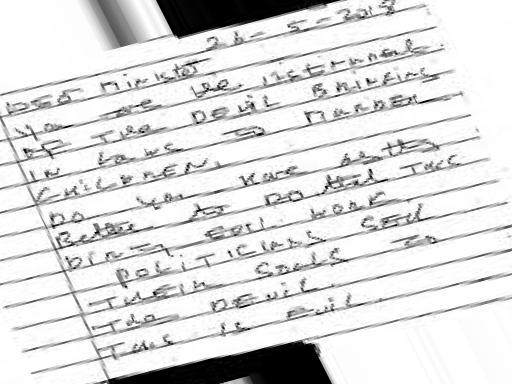 26-5-2018
DEAR Minister
you are the instrument
OF The DEVIL BRINGING
IN LAWS TO MURDER
CHILDREN.
DO you have nothing
Better to DO than THIS
DIRTY EVIL WORK
POLITICIANS SELL
THEIR SOULS TO
The DEVIL.
This is Evil.